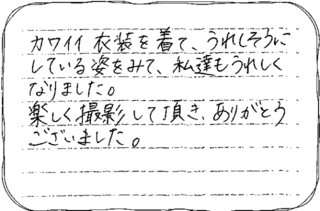 カワイイ衣装を着て、うれしそうに
している姿をみて、私達もうれしく
なりました。
楽しく撮影して頂き、ありがとう
ございました。